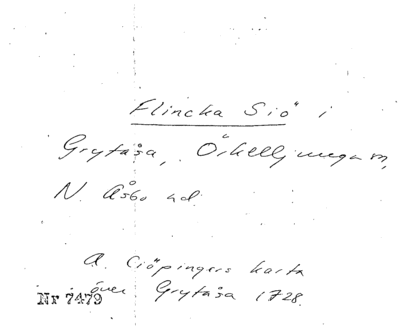 Flincka Siö i
Grytåsa, Örkelljunga sn,
N. Åsbo hd.
A. Ciöpingers karta
över Grytåsa 1728.
Nr 7479